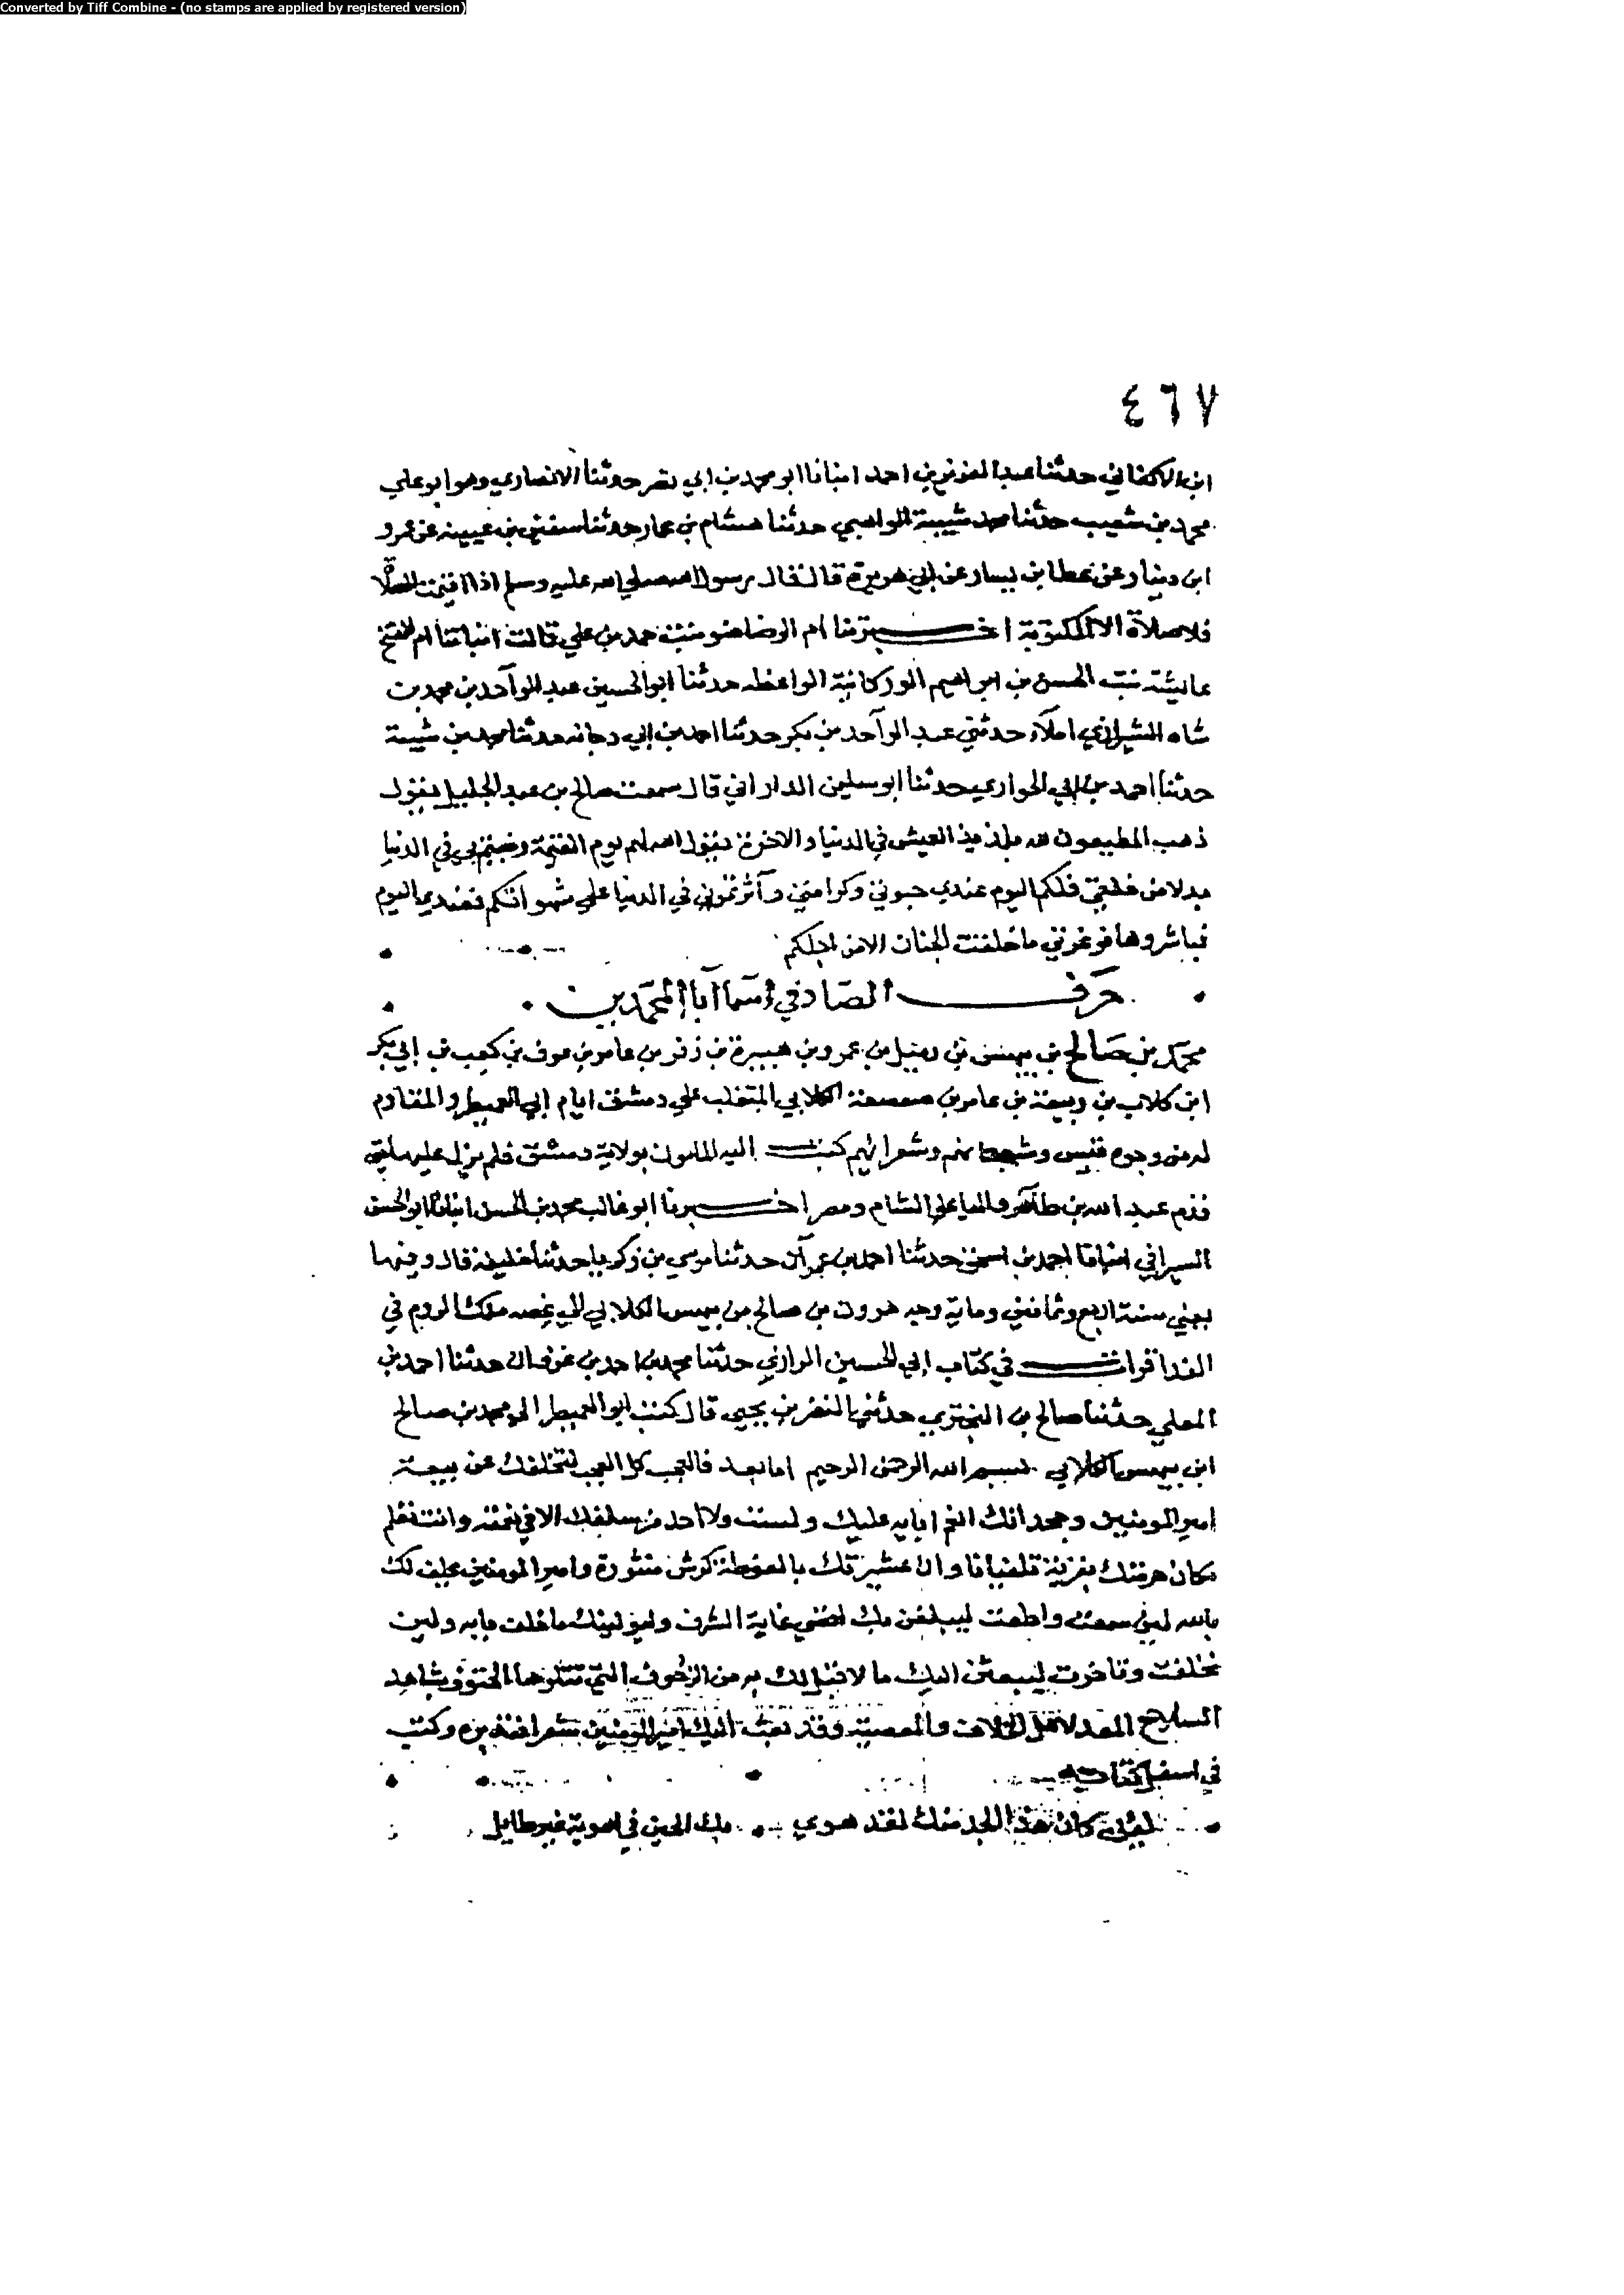 Converted by Tiff Combine - (no stamps are applied by registered version)
٤٦٧
ابن الاكفاني حدثنا عبد العزيز بن احمد انبانا ابو محمد بن ابي نصر حدثنا الانصاري وهو ابو علي
محمد بن شعيب حدثنا محمد شيبة الراهبي حدثنا هشام بن عمار حدثنا سفين بن عيينه عن عمرو
ابن دينار عن عطا بن يسار عن ابي هريرة قال قال رسول الله صلى الله عليه وسلم اذا اقيمت الصلاة
فلا صلاة الا المكتوبة اخبرتنا ام الرضا ضو بنت حمد بن علي قالت انباتنا ام الفتح
عائيشة بنت الحسن بن ابراهيم الوركانية الواعظه حدثنا ابو الحسين عبد الوآحد بن محمد بن
شاه الشيرازي املآء حدثني عبد الوآحد بن بكر حدثنا احمد بن ابي دجانه حدثنا محمد بن شيبة
حدثنا احمد بن ابي الحواري حدثنا ابو سليمن الداراني قال سمعت صالح بن عبد الجليل يقول
ذهب المطيعون لله بلذيذ العيش في الدنيا والاخرة يقول الله لهم يوم القيمة رضيتم بي في الدنيا
بدلا من خلقي فلكم اليوم عندي حبوتي وكرامتي وآثرتموني في الدنيا علي شهواتكم فعندي اليوم
فباشروها فوعزتي ما خلقت الجنان الا من اجلكم
حرف الصاد في اسما آبا المحمدين
محمد بن صالح بن بيهس بن زميل بن عمرو بن هبيرة بن زفر بن عامر بن عوف بن كعب بن ابي بكر
ابن كلاب بن ربيعة بن عامر بن صعصعة الكلابي المتغلب علي دمشق ايام ابي العميطر والمقاوم
له من وجوه قيس وشجعانهم وشعرائهم كتب اليه المامون بولاية دمشق فلم يزل عليها حتي
قدم عبد الله بن طاهر واليا علي الشام ومصر اخبرنا ابو غالب محمد بن الحسن انبانا ابو الحسن
السيرافي انبانا احمد بن اسحق حدثنا احمد بن عمرآن حدثنا موسي بن زكريا حدثنا خليفة قال وفيها
يعني سنة اربع وثمانين وماية وجه هرون بن صالح بن بيهس الكلابي الي ملك الروم في
الفدا قرات في كتاب ابي الحسين الرازي حدثنا محمد بن احمد بن غزوان حدثنا احمد بن
المعلي حدثنا صالح بن البختري حدثني النضر بن يحيي قال كتب ابو العميطر الي محمد بن صالح
ابن بيهس الكلابي بسم الله الرحمن الرحيم اما بعد فالعجب كل العجب لتخلفك عن بيعة
امير المومنين وجحدانك انعم ابايه عليك ولست ولا احد من سلفك الا في نعمته وانت تعلم
مكان حرمتك بقرية تلفياثا وان عشيرتك بالغوطة كرش منثورة وامير المومنين يحلف لك
بالله لين سمعت واطعت ليبلغن بك اقصي غاية الشرف وليولينك ما خلف بابه ولين
تخلفت وتاخرت ليبعثن اليك ما لا قبل لك به من الزحوف التي تتلوها الحتوف بشاهد
السلاح المعد لاهل الخلاف والمعصية وقد بعث اليك امير المومنين شعرا فتدبره وكتب
في اسفل كتابه
لين كان هذا الجد منك لقد هوي بك الحين في اهوية غير طايل